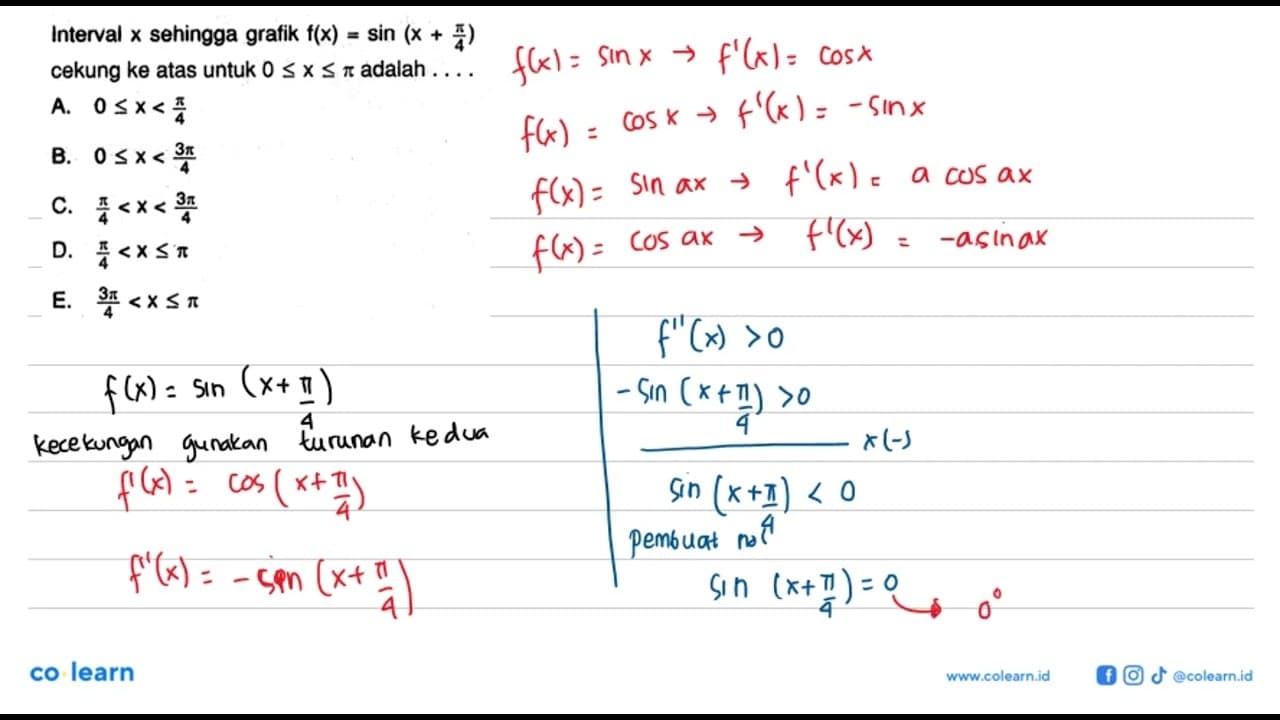 Interval x sehingga grafik f(x) = sin (x + π/4)
cekung ke atas untuk 0 ≤ x ≤ π adalah . . . .
A. 0 ≤ x < π/4
B. 0 ≤ x < 3π/4
C. π/4 < x < 3π/4
D. π/4 < x ≤ π
E. 3π/4 < x ≤ π
f(x) = sin x → f'(x) = cos x
f(x) = cos x → f'(x) = -sin x
f(x) = sin ax → f'(x) = a cos ax
f(x) = cos ax → f'(x) = -a sin ax
f(x) = sin (x + π/4)
kecekungan gunakan turunan kedua
f'(x) = cos (x + π/4)
f''(x) = - sin (x + π/4)
f''(x) > 0
- sin (x + π/4) > 0
x (-)
sin (x + π/4) < 0
pembuat nol
sin (x + π/4) = 0 → 0°
co·learn
www.colearn.id
@colearn.id